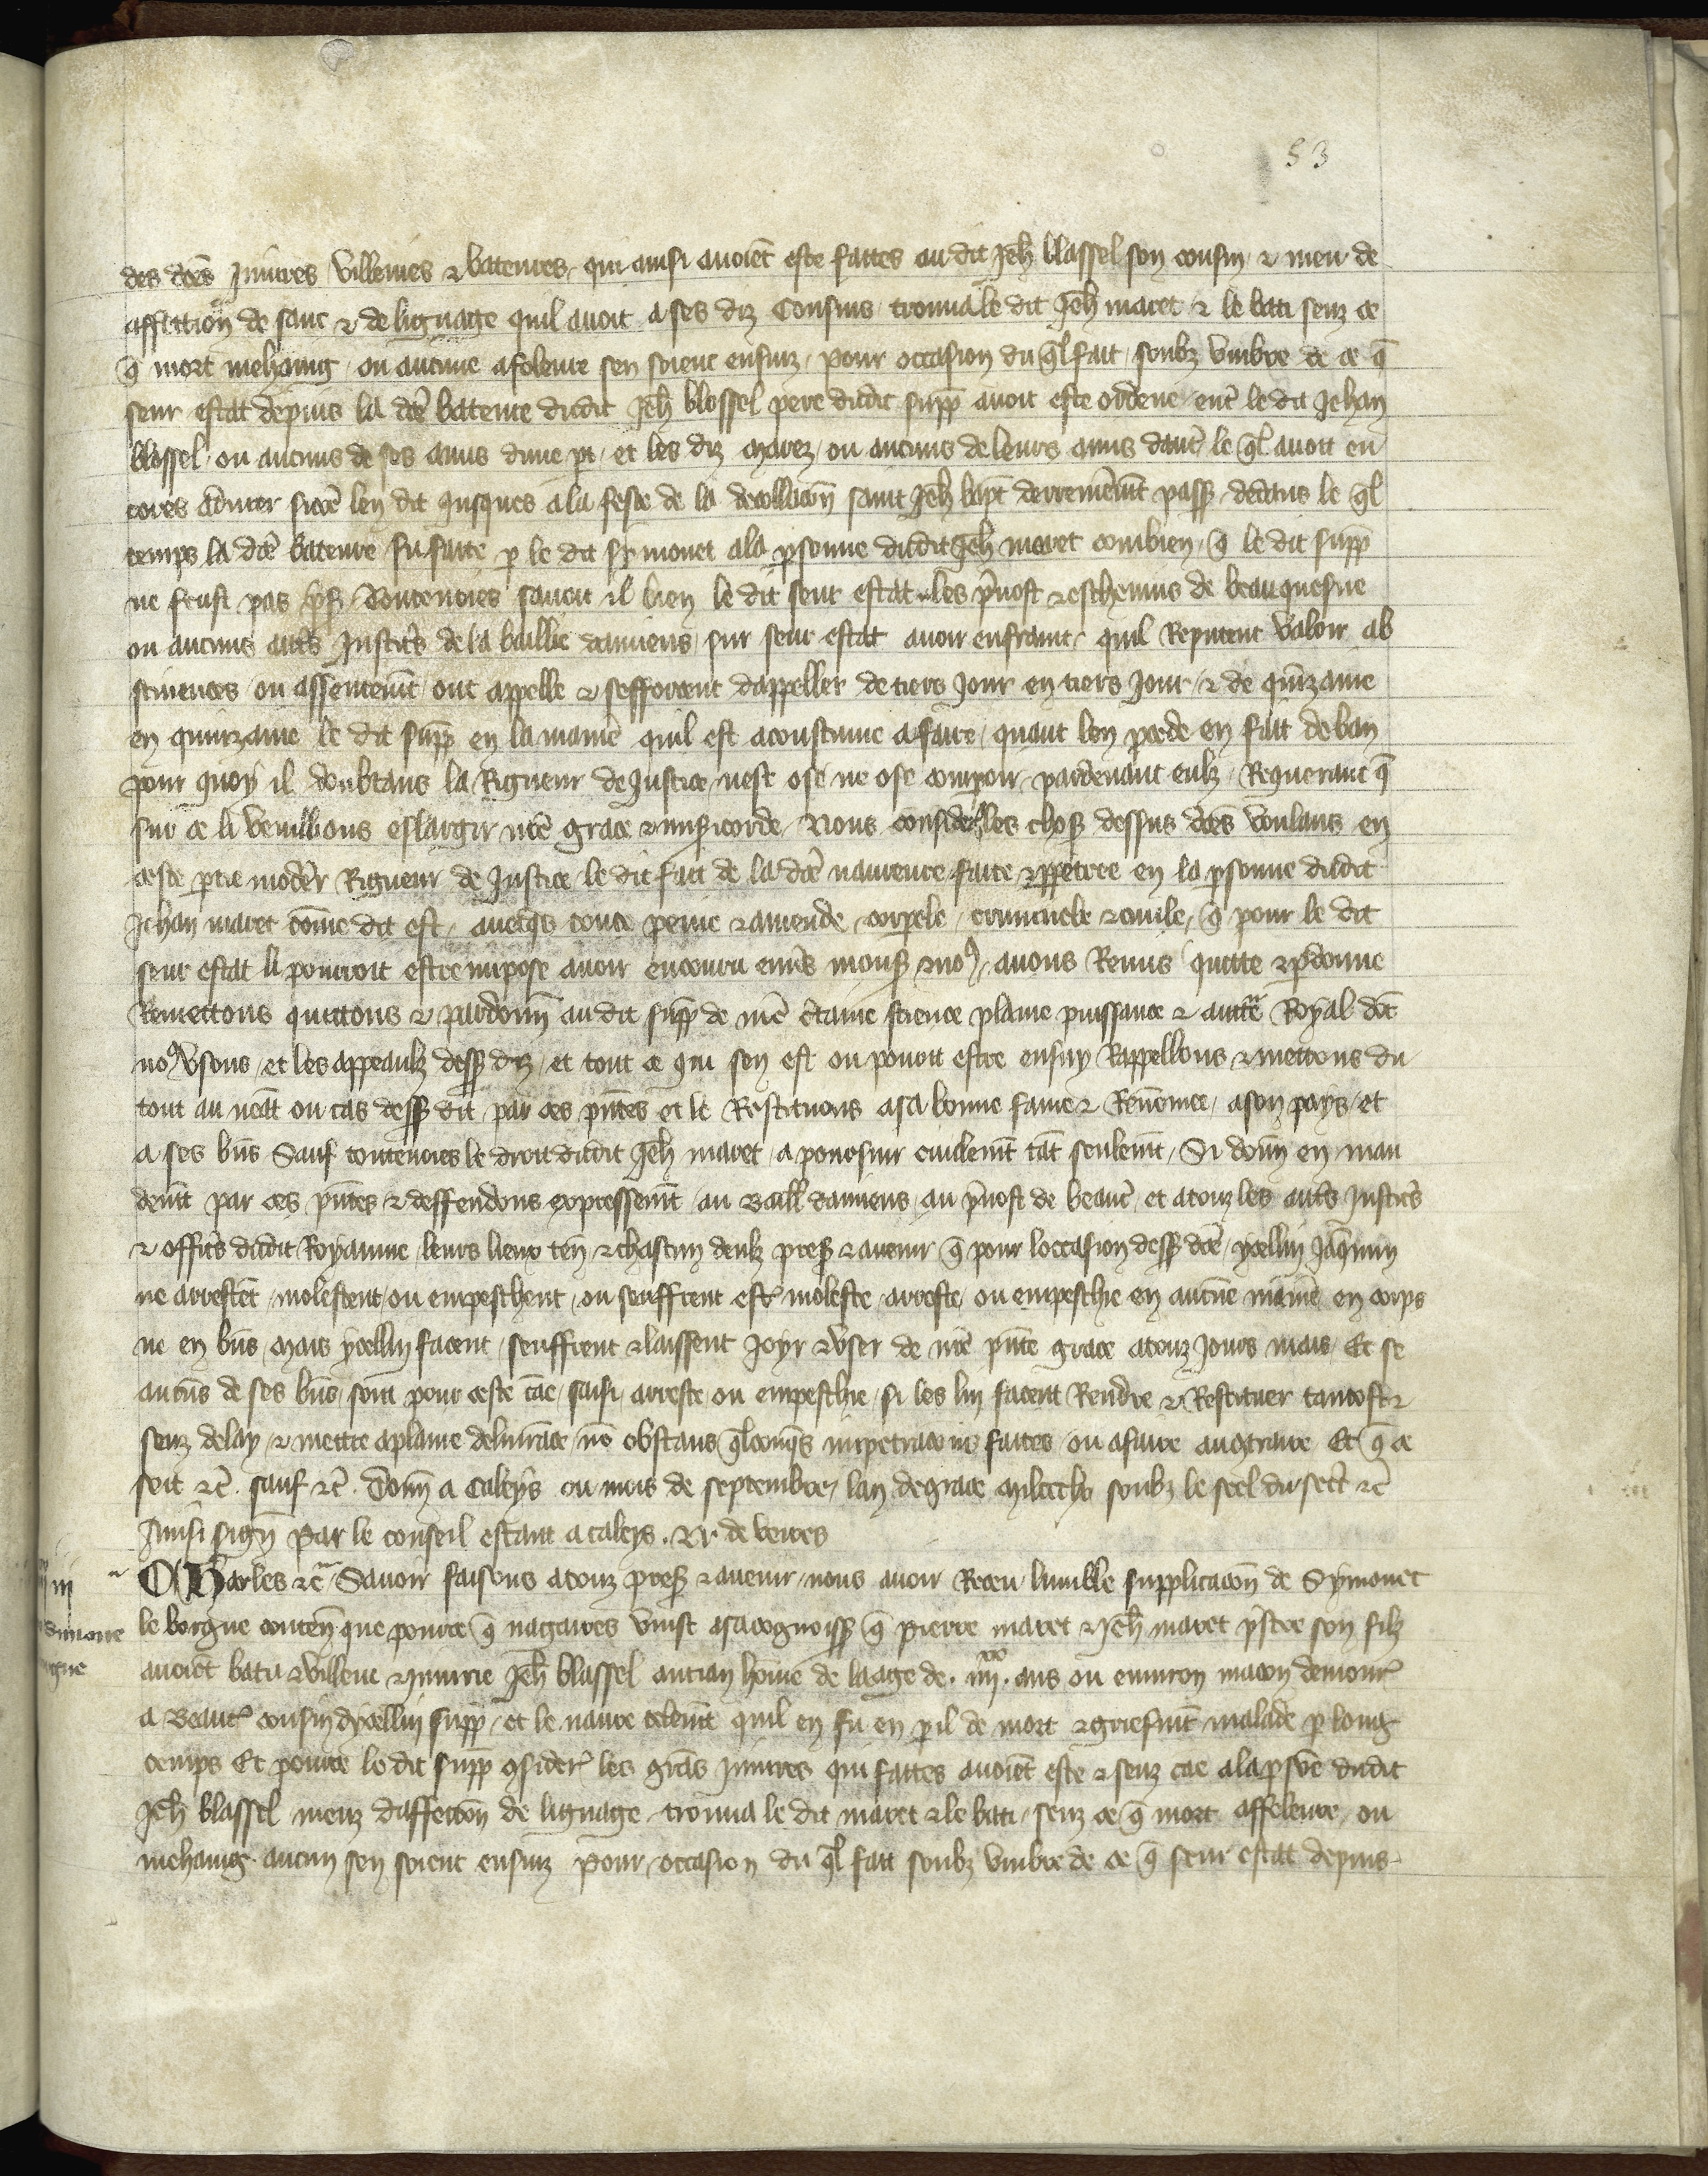 53
des dces Iniures villenies & bateures qui ainsi auoiēt este faites au dit Jeh blassel son cousin & meu de
affeccion de sanc & de lignage quil auoit a ses diz Cousins trouua le dit Jeh maret & le bati senz ce
q mort mehaing ou aucune afoleure sen soient ensuiz pour occasion du ql fait soubz vmbre de ce q
seur estat depuis la dce bateure dudit Jeh blossel pere dudit supp auoit este ordene entr le dit Jehan
blossel ou aucuns de ses amis dune pt et les diz marez ou aucuns de leurs amis dautr le ql auoit en
cores a durer sicōe len dit Jusques a la feste de la decollacōn saint Jeh bapt derreinemēt passe dedans le ql
temps la dce bateure fu faite p le dit Symonet a la psonne dudit Jeh maret combien q le dit supp
ne feust pas ps Toutenoies sauoit il bien le dit seur estat les puost & escheuins de beauquesne
ou aucuns autrs Justicrs de la baillie damiens sur seur estat auoir enfraint quil Reputent valoir ab
stinences ou asseuremēt ont appelle & sefforcent dappeller de tiers Jour en tiers Jour & de quīzaine
en quinzaine le dit supp en la manie quil est acoustume a faire quant len pcede en fait de ban
pour quoy il doubtans la Rigueur de Justice nest ose ne ose compoir pardeuant eulz Requerant q
sur ce li veuillions eslargir nre grace & misicorde Nous consider les choses dessus dces voulans en
ceste ptie moderer Rigueur de Justice le dit fait de la dce naureure faite & ppetree en la psonne dudit
Jehan maret cōme dit est auecqs toute peine & amende corpele criminele & ciuile q pour le dit
seur estat li pourroit estre impose auoir encouru enuers mons & no9 auons Remis quitte & pdonne
Remettons quittons & pardonn au dit supp de nre ctaine science plaine puissance & auctte Royal dōt
no9 vsons et les appeaulz dess diz et tout ce qui sen est ou pouoit estre ensuy Rappellons & mettons du
tout au neāt ou cas dess dit par ces pntes et le Restituons a sa bonne fame & Renōmee a son pays et
a ses bns Sauf toutenoies le droit dudit Jeh maret a poursuir ciuilemēt tāt seulemt Si donn en man
demt par ces pntes & deffendons expressemt au Baill damiens au puost de beauq et a touz les autrs Justicrs
& officrs dudit Royaume leurs lieux ten & chascun deulz pres & auenir q pour loccasion dess dce ycellui Jaqmin
ne arrestēt molestent ou empeschent ou seuffrent estr moleste arreste ou empeschie en aucune manie en corps
ne en bns mais ycellui facent seuffrent & laissent Joyr & vser de nre pnte grace a touz Jours mais Et se
aucūs de ses bns sont pour ceste cāe saisi arreste ou empeschie si les lui facent Rendre & Restituer tantost &
senz delay & mettre a plaine deliurāce nō obstans qlconqs impetracions faites ou a faire au ctraire Et q ce
soit &c sauf &c Donn a Caleys ou mois de septembre lan de grace mil ccc lx soubz le seel du secr &c
Ainsi sign Par le conseil estant a caleys . Yr de veires
CHarles &c Sauoir faisons a touz pres & auenir nous auoir Receu lumble supplicacōn de Symonet
le borgne conten que pource q nagaires vinst a sa cognoiss q pierre maret & Jeh maret pstre son filz
auoiēt batu & villene & Iniurie Jeh blassel ancian hōme de laage de . iiij xx . ans ou enuiron macon demour
a Beauq cousin dycellui supp et le naure telemt quil en fu en pil de mort & griefmt malade p long
temps Et pource le dit supp csider les grās Iniures qui faites auoiēt este & senz cāe a la psōne dudit
Jeh blassel meuz daffeccōn de lignage trouua le dit maret & le bati senz ce q mort affeleure ou
mehaing aucun sen soient ensuiz pour occasion du ql fait soubz vmbre de ce q seur estat depuis